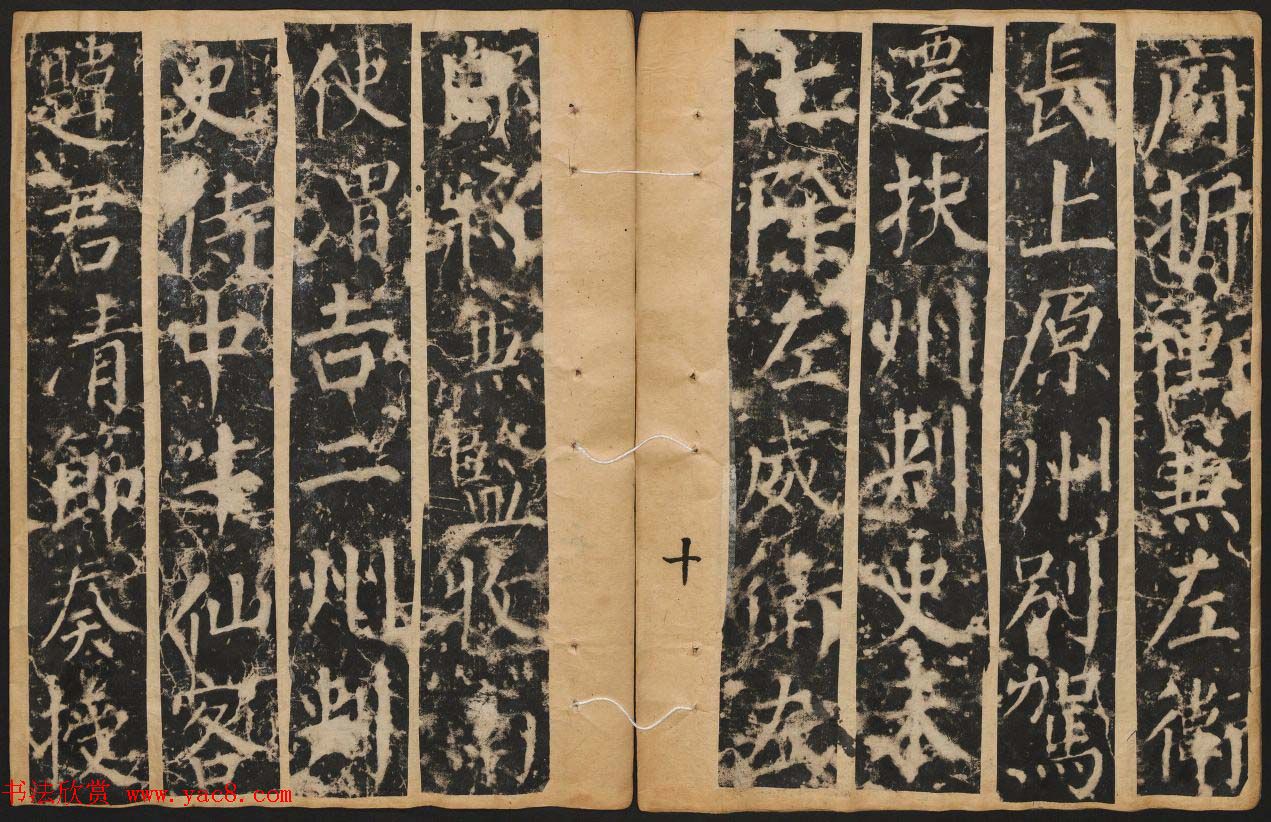 府折衝兼左衛
長上原州別駕
遷扶州刺史未
上除左威衛左
十
郎將兼監牧南
使渭吉二州刺
史侍中牛仙客
韙君清節奏授
书法欣赏 www.yac8.com